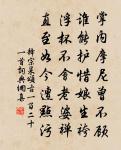 掌内摩尼曾不顾
谁能护惜娘生袴
浮杯不会老婆禅
直至如今遭点污
释宗杲颂古一百二十
一首词典网集